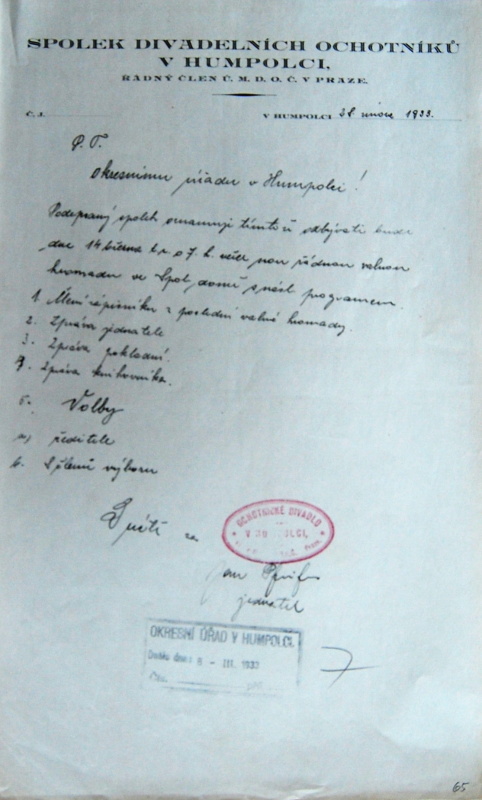 SPOLEK DIVADELNÍCH OCHOTNÍKŮ
V HUMPOLCI,
ŘÁDNÝ ČLEN Ú. M. D. O. Č. V PRAZE.
Č. J. V HUMPOLCI 28 února 1933.
P. T.
Okresnímu úřadu v Humpolci!
Podepsaný spolek oznamuje tímto že odbývati bude
dne 14 března t. r. o 7. h. večer řádnou valnou
hromadu ve Spol. domu s násl. programem.
1. Čtení zápisníku z poslední valné hromady.
2. Zpráva jednatele
3. Zpráva pokladní.
4. Zpráva knihovníka.
5. Volby
a) ředitele
b. členů výboru
V úctě za
OCHOTNICKÉ DIVADLO
V HUMPOLCI,
Jan
jednatel
OKRESNÍ ÚŘAD V HUMPOLCI.
Došlo dne: 8 - III. 1933
Čís.
65